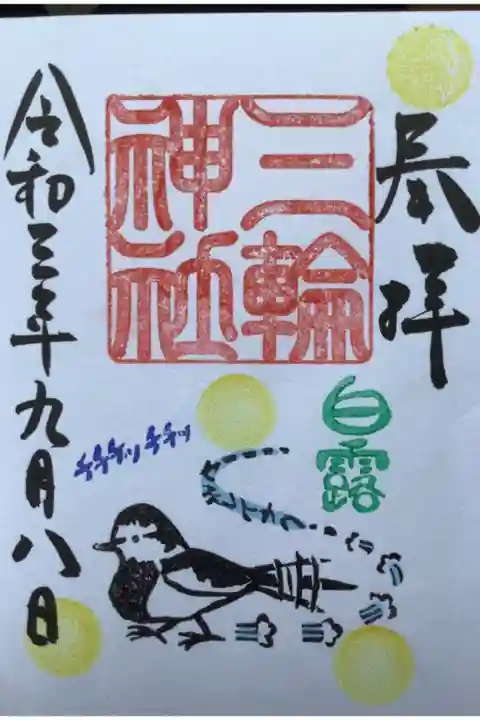 奉拝
三輪
神社
白露
チチチッチチッ
令和三年九月八日